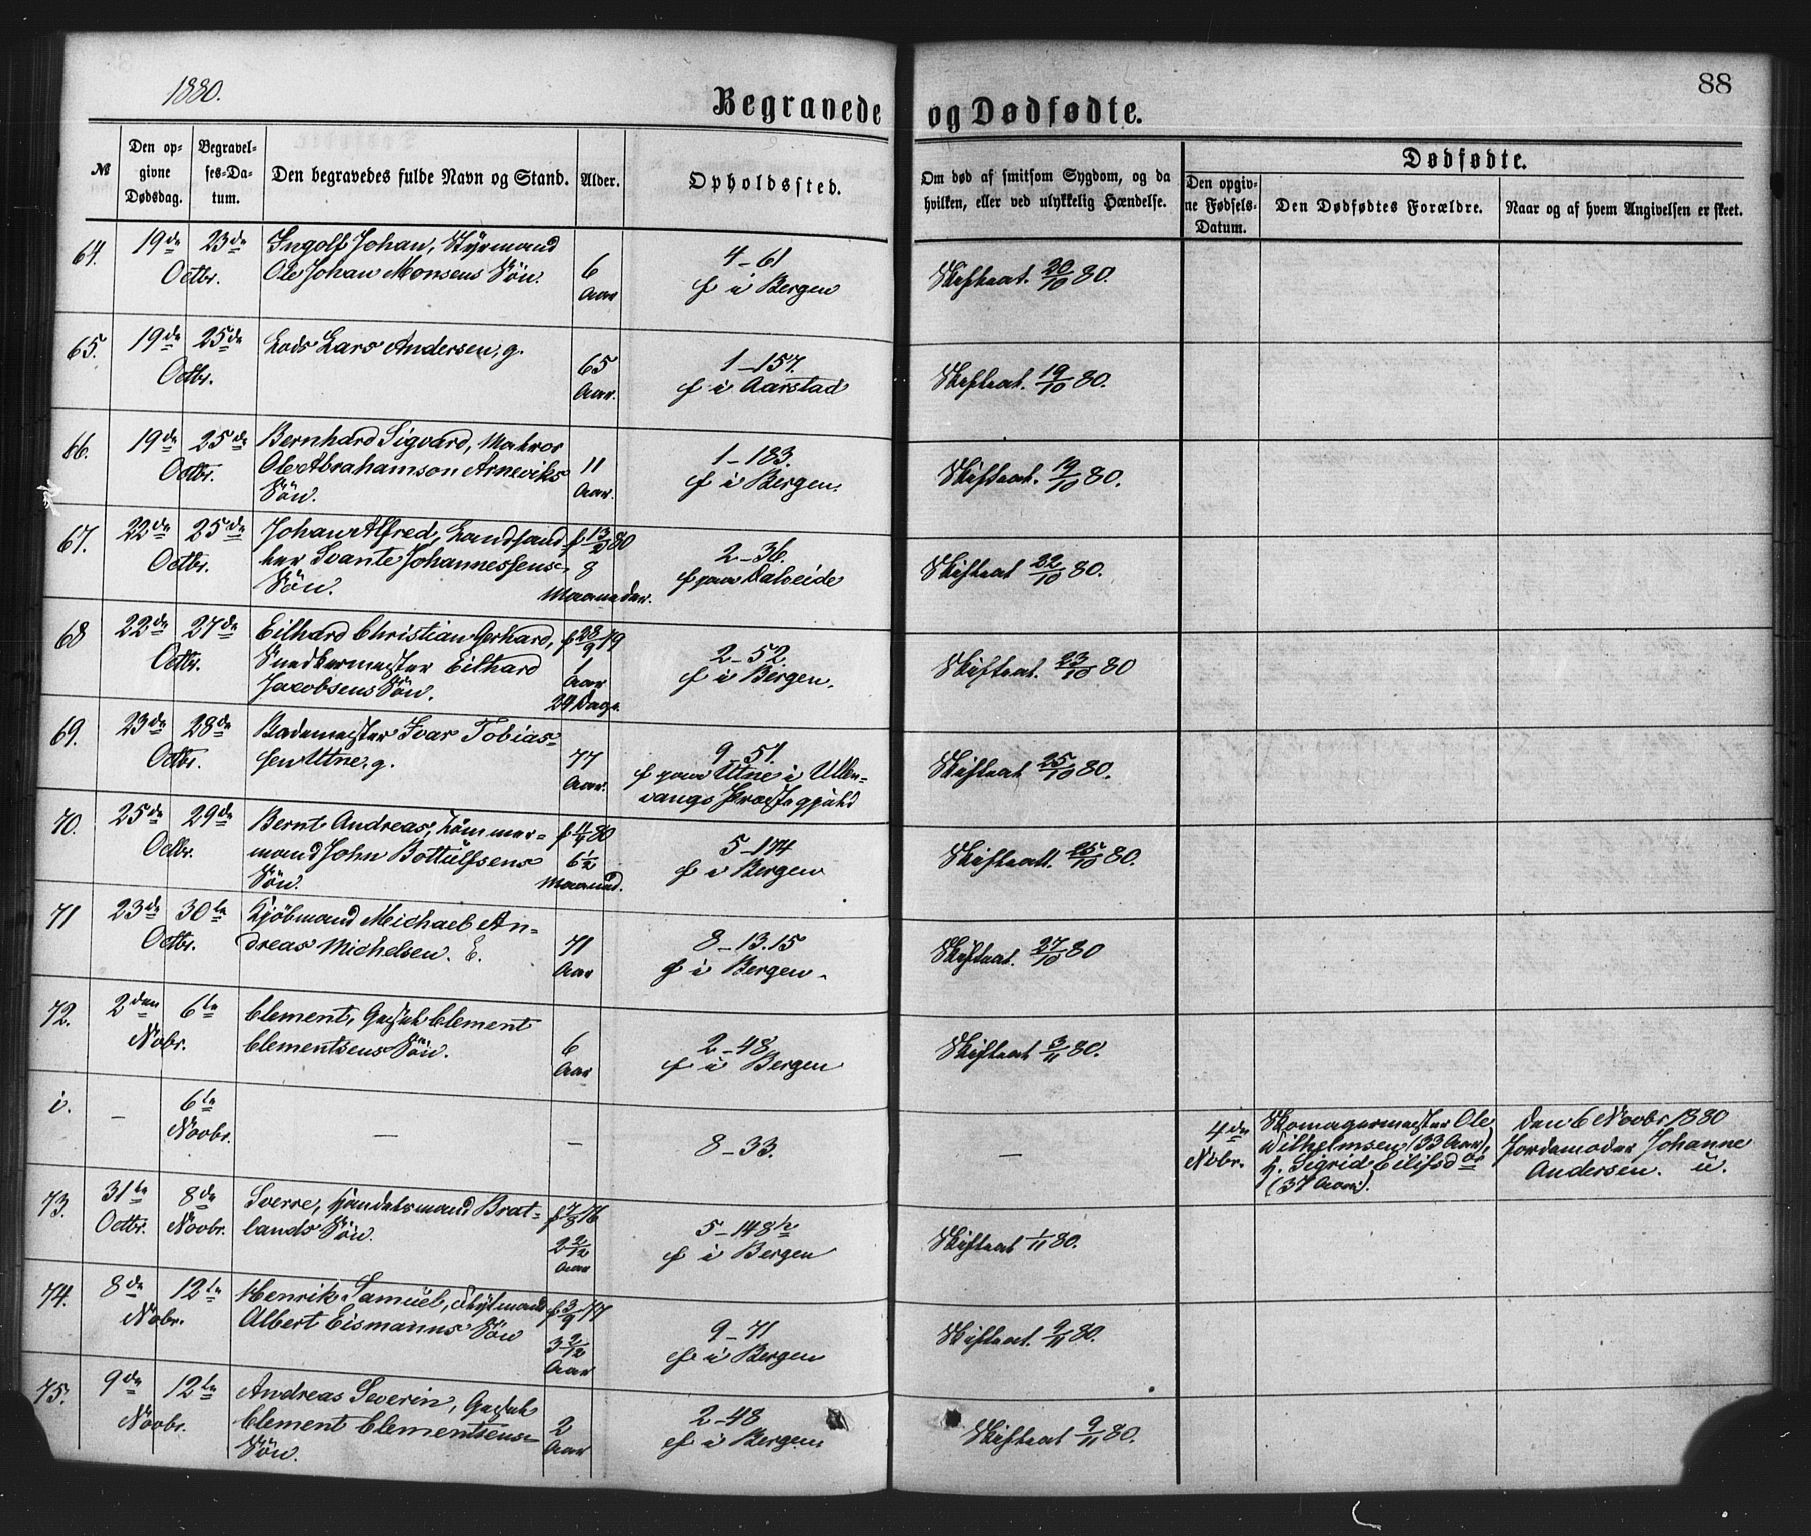 1880.
88
Begravede og Dødfødte.
№
Den opgivne Dødsdag.
Begravelses-Datum.
Den begravedes fulde Navn og Stand.
Alder.
Opholdssted.
Om død af smitsom Sygdom, og da hvilken, eller ved ulykkelig Hændelse.
Dødfødte.
Den opgivne Fødsels-Datum.
Den Dødfødtes Forældre.
Naar og af hvem Angivelsen er skeet.
64. 19de 23de Ingolf Johan, Styrmand 4-61
Octbr. Ole Johan Monsens Søn. 6 Aar f i Bergen Skifteat. 20/10 80.
65. 19de 25de Lods Lars Andersen, g. 1-157.
Octbr. 65 Aar. f i Aarstad Skifteat. 19/10 80.
66. 19de 25de Bernhard Sigvard, Matros 1-183.
Octbr. Ole Abrahamson Arneviks 11 Aar. f i Bergen. Skifteat. 19/10 80.
Søn.
67. 22de 25de Johan Alfred, f 13/2 80 2-36.
Octbr. Svante Johannessens 8 f paa Dalseide Skifteat 22/10 80.
Søn. Maaneder.
68 22de 27de Eilhard Christian Gerhard, f 28/9 79 2-52.
Octbr. Snedkermester Eilhard 1 Aar f i Bergen. Skifteat. 23/10 80
Jacobsens Søn. 24 Dage.
69. 23de 28de Bademester Ivar Tobias- 9-51.
Octbr. sen Utne, g. 77 Aar. f paa Utne i Ullen- Skifteat 25/10 80.
vangs Præstegjæld
70. 25de 29de Bernt Andreas, Tømmer- f 4/4 80 5-174
Octbr. mand John Bottulfsens 6½ f i Bergen Skifteatt. 25/10 80.
Søn. Maaned.
71 23de 30te Kjøbmand Michael An- 8-13.15
Octbr. dreas Michelsen. E. 71 Aar f i Bergen. Skifteat. 27/10 80
72. 2den 6te Clement, Clement 2-48
Novbr. Clementsens Søn. 6 Aar f i Bergen Skifteat 3/11 80.
i. — 6te Novbr. — — 8-33. — 4de Novbr.
Skomagermester Ole
Wilhelmsen (33 Aar),
h. Sigrid Eilifsdtr
(37 Aar).
Den 6 Novbr 1880
Jordemoder Johanne
Andersen. u.
73. 31te 8de Sverre, Handelsmand Brat- f 7/8 76 5-148h
Octbr. Novbr. lands Søn. 2 2/12 Aar f i Bergen Skifteat 1/11 80.
74. 8de 12te Henrik Samuel, f 3/9 77 9-71
Novbr. Albert Eismanns Søn 3 2/12 Aar f i Bergen Skifteat. 9/11 80.
75. 9de 12te Andreas Severin, 2-48
Novbr. Clement Clementsens 2 Aar f i Bergen. Skifteat 9/11 80.
Søn.